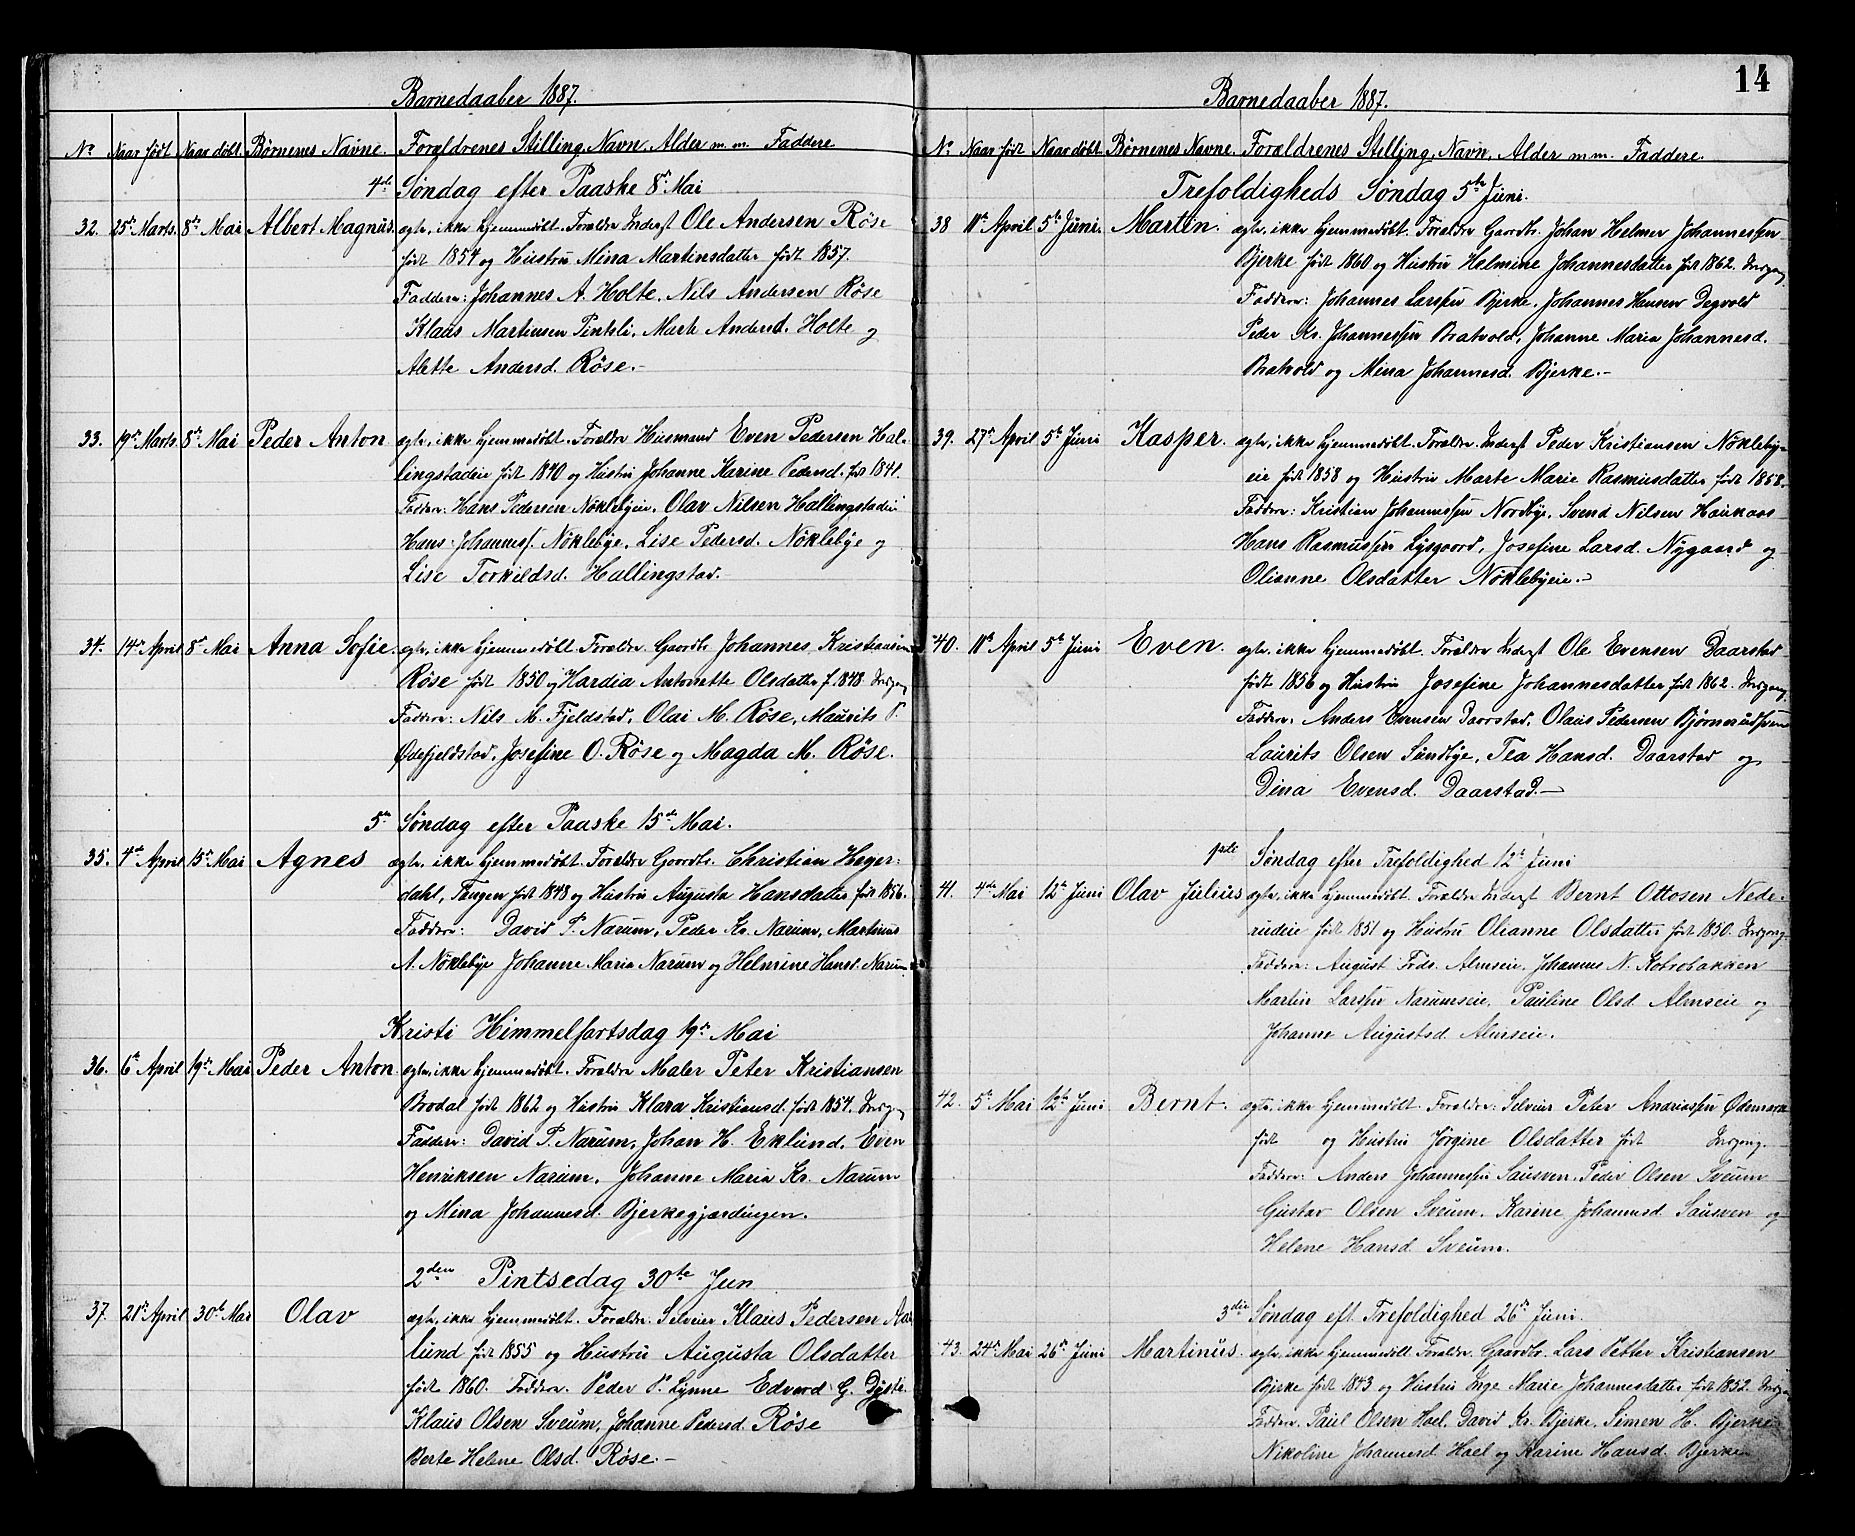 Barnedaaber 1887.
No Naar født Naar døbt. Børnenes Navne. Forældrenes Stilling, Navn, Alder m. m. Faddere.
4de Søndag efter Paaske 8de Mai
32. 25de Marts. 8de Mai Albert Magnus. ægte, ikke hjemmedøbt. Forældre Inderst Ole Andersen Røse
født 1854 og Hustru Mina Martinsdatter født 1857.
Faddere: Johannes A. Holte, Nils Andersen Røse
Klaus Martinsen Pintsli, Marte Andersd. Holte og
Alette Andersd. Røse.-
33. 19de Marts. 8de Mai Peder Anton ægte, ikke hjemmedøbt. Forældre Husmand Even Pedersen Hal-
lingstadeie født 1840 og Hustru Johanne Karine Pedersd. født 1841.
Faddere: Hans Pedersen Nøklebyeie, Olav Nilsen Hallingstadeie
Hans Johannesf. Nøklebye, Lise Pedersd. Nøklebye og
Lise Torkildsd. Hallingstad.-
34. 14de April 8de Mai Anna Sofie. ægte, ikke hjemmedøbt. Forældre Gaardbr. Johannes Kristiansen
Røse født 1850 og Hardia Antonette Olsdatter f. 1848. Indgang
Faddere: Nils M. Fjeldstad, Olai M. Røse, Maurits P.
Ødefjeldstad, Josefine O. Røse og Magda M. Røse.
5te Søndag efter Paaske 15de Mai.
35. 4de April 15de Mai Agnes ægte, ikke hjemmedøbt. Forældre Gaardbr. Christian Heyer-
dahl, Tangen født 1848 og Hustru Augusta Hansdatter født 1856.
Faddere: David P. Narum, Peder Kr. Narum, Martinus
A. Nøklebye Johanne Maria Narum og Helmine Hansd. Narum
Kristi Himmelfartsdag 19de Mai
36. 6te April 19de Mai Peder Anton. ægte, ikke hjemmedøbt. Forældre Maler Peter Kristiansen
Brodal født 1862 og Hustru Klara Kristiansd. født 1854. Indgang
Faddere: David P. Narum, Johan H. Eklund, Even
Henriksen Narum, Johanne Maria Kr. Narum
og Mina Johannesd. Bjerkegjærdingen.
2den Pintsedag 30te Jun
37. 21de April 30te Mai Olav ægte, ikke hjemmedøbt. Forældre: Selveier Klaus Pedersen
lund født 1855 og Hustru Augusta Olsdatter
født 1860. Faddere. Peder P. Lynne Edvard G. Dyste.
Klaus Olsen Sveum, Johanne Pedersd. Røse
Berte Helene Olsd. Røse.-
14
Barnedaaber 1887.
No Naar født Naar døbt. Børnenes Navne. Forældrenes Stilling, Navn, Alder m m. Faddere.
Trefoldigheds Søndag 5te Juni.
38 11te April 5te Juni. Martin. ægte, ikke hjemmedøbt. Forældre Gaardbr. Johan Helmer Johannessen
Bjerke født 1860 og Hustru Helmine Johannesdatter født 1862. Indgang
Faddere: Johannes Larssen Bjerke, Johannes Hansen Degvold
Peder Kr. Johannessen Bratvold, Johanne Maria Johannesd.
Bratvold og Mina Johannesd. Bjerke.-
39. 27de April 5te Juni Kasper. ægte, ikke hjemmedøbt. Forældre. Inderst Peder Kristiansen Nøkleby-
eie født 1858 og Hustru Marte Marie Rasmusdatter født 1858.
Faddere: Kristian Johannessen Nordbye, Svend Nilsen Haukaas
Hans Rasmussen Lysgaard, Josefine Larsd. Nygaard og
Olianne Olsdatter Nøklebyeie.-
40. 11te April 5te Juni Even. ægte, ikke hjemmedøbt. Forældre Inderst Ole Evensen Daarstad
født 1856 og Hustru Josefine Johannesdatter født 1862. Indgang
Faddere. Anders Evensen Daarstad, Olaus Pedersen
Laurits Olsen Sundbye, Tea Hansd. Daarstad og
Dina Evensd. Daarstad.-
1ste Søndag efter Trefoldighed 12te Juni
41. 4de Mai 12te Juni Olav Julius ægte, ikke hjemmedøbt. Forældre Inderst Bernt Ottosen Nede-
rudeie født 1851 og Hustru Olianne Olsdatter født 1850. Indgang.
Faddere: August Frds. Almseie, Johannes N. Kobrobakken
Martin Larssen Narumseie, Pauline Olsd. Almseie og
Johanne Augustsd Almseie.
42. 5te Mai 12te Juni Bernt. ægte, ikke hjemmedøbt. Forældre: Selveier Peter Andriassen Ødemark
født og Hustru Jørgine Olsdatter født Indgang.
Faddere: Anders Johannessen Sausven, Peder Olsen Sveum
Gustav Olsen Sveum, Karine Johannesd. Sausven og
Helene Hansd. Sveum.
3die Søndag eft. Trefoldighed 26de Juni.
43. 24de Mai 26de Juni Martinus. ægte, ikke hjemmedøbt. Forældre. Gaardbr. Lars Petter Kristiansen
Bjerke født 1843 og Hustru Inge Marie Johannesdatter født 1852. Indgang
Faddere. Paul Olsen Hoel, David Kr. Bjerke, Simen H. Bjerke
Nikoline Johannesd Hoel og Karine Hansd. Bjerke